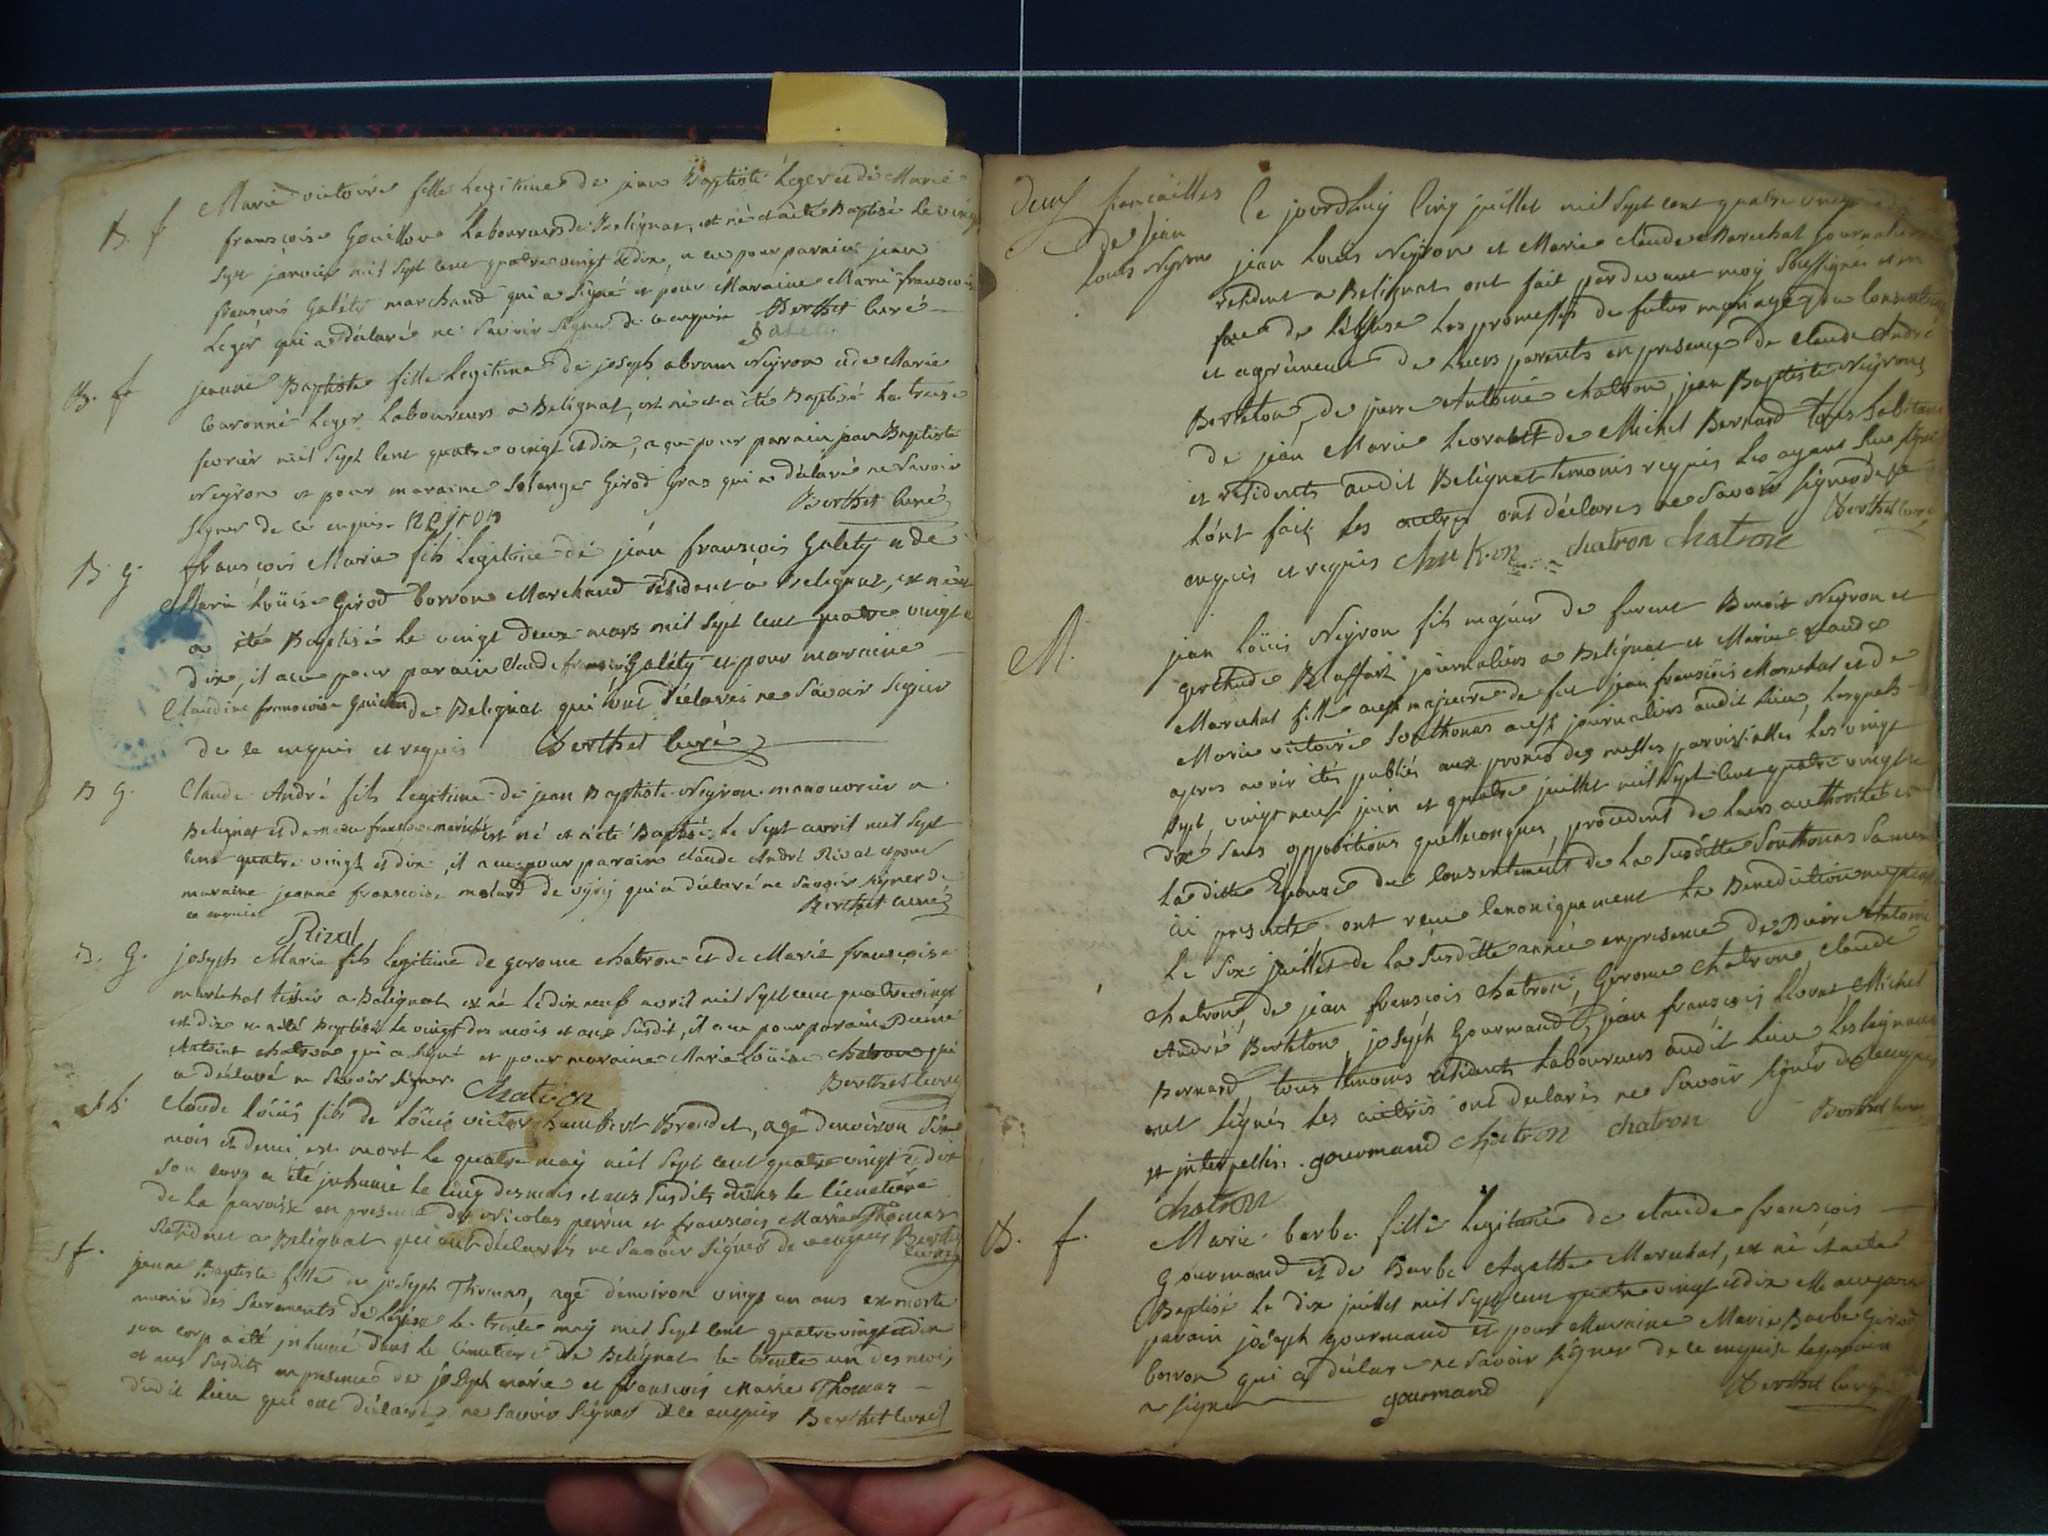 B. f
Marie victoire fille Legitime de jean Baptiste Leger et de Marie
françoise Gouillon Laboureurs de Belignat, est né et a été Baptisé Le vingt
sept janvier mil sept cent quatre vingt et dix, a eu pour parain jean
françois Galéty marchand qui a signé et pour Maraine Marie françoise
Leger qui a déclaré ne savoir signer de ce enquise Berthet curé
B. f
jeanne Baptiste fille Legitime de joseph abram Neyron et de Marie
Caronne Leger Laboureurs a Belignat, est né et a été Baptisé La treize
fevrier mil sept cent quatre vingt et dix, a eu pour parain jean Baptiste
Neyron et pour maraine Solange Girod Gras qui a déclaré ne savoir
signer de ce enquise neyron Berthet curé
B. g
françois Marie fils Legitime de jean françois Galety et de
Marie Loüise Girod borron Marchand résident à Belignat, est né et
a été Baptisé Le vingt deux mars mil sept cent quatre vingt et
dix, il a eu pour parain Claude françois Galéty et pour maraine
Claudine françoise de Belignat qui ont déclarés ne savoir signer
de ce enquis et requis Berthet curé
B g.
Claude André fils Legitime de jean Baptiste Neyron manouvrier a
Belignat et de françoise est né et a été Baptisé Le sept avril mil sept
cent quatre vingt et dix, il a eu pour parain Claude André Rival et pour
maraine jeanne françoise molard de qui a déclaré ne savoir signer de
ce enquise Berthet curé
Rival
B. G.
joseph Marie fils Legitime de gerome chatron et de Marie françoise
marechal a Belignat est né Le dix neuf avril mil sept cent quatre vingt
et dix et a été Baptisé Le vingt des mois et ans susdit, il a eu pour parain Pierre
Antoine chatron qui a signé et pour maraine Marie Loüise chatron qui
a déclaré ne savoir signer. Chatron Berthet curé
Claude Loüis fils de Loüis victor humbert Brondet, agé denviron six
mois et demi est mort Le quatre may mil sept cent quatre vingt et dix
son corp a été inhumé Le cinq des mois et ans susdits dans Le cimetière
de La paroisse en presence de Nicolas perrin et françois Marie Thomas
Résident a Belignat qui ont déclarés ne savoir signer de ce enquis Berthet
curé
S f.
jeanne Baptiste fille de joseph Thomas, agé denviron vingt un ans est morte
munie des sacrements de Léglise Le trente may mil sept cent quatre vingt et dix
son corp a été inhumé dans Le cimetiere de Belignat Le trente un des mois
et ans susdits en presence de joseph marie et françois Marie Thomas
dudit Lieu qui ont déclarés ne savoir signer de ce enquis Berthet curé
Deux fiancailles
de jean
Louis Neyron
Ce jourdhuy Cinq juillet mil sept cent quatre vingt
jean Loüis Neyron et Marie Claude Marechal journaliers
résident a Belignat ont fait pardevant moy soussigné et en
face de Léglise Les promesses de futur mariage, du consentement
et agrément de Leurs parents en presence de Claude André
Berteton, de piere Antoine chatron, jean Baptiste Neyron,
de jean Marie Levrat et de Michel Bernard tous habitans
et résidents audit Belignat temoins requis Les ayant sçu signé
L'ont fait Les autres ont déclarés ne savoir signer de ce
enquis et requis chatron chatron chatron Berthet curé
M.
jean Loüis Neyron fils majeur de furent Benoit Neyron et
gertrude Blaffart journaliers a Belignat et Marie Claude
Marechal fille aussi majeure de feu jean françois Marechal et de
Marie victoire Southonas aussi journaliers audit Lieu, Lesquels
apres avoir étés publiés aux prones des messes paroissialles Les vingt
sept, vingt neuf juin et quatre juillet mil sept cent quatre vingt et
dix sans oppositions quelleconques, procedent de Leurs authorité et
La ditte Epouse du consentement de La susditte Southonas sa mere
ici presente ont reçu canoniquement La Benediction nuptiale
Le six juillet de La susditte année en presence de Pierre Antoine
chatron de jean françois chatron, Gerome chatron, Claude
André Berteton, joseph Gourmand, jean françois Levrat, Michel
Bernard tous temoins résidents Laboureurs audit Lieu Les signants
ont signés Les autres ont declarés ne savoir signér de ce enquis
et interpellés. gourmand chatron chatron Berthet curé
Chatron
B. f.
Marie barbe fille Legitime de claude françois
gourmand et de Barbe Agathe Marechal, est né et a été
Baptisé Le dix juillet mil sept cent quatre vingt et dix Elle a eu pour
parain joseph gourmand et pour Maraine Marie Barbe Girod
borron qui a déclare ne savoir signer de ce enquise Le parain
a signe gourmand Berthet curé